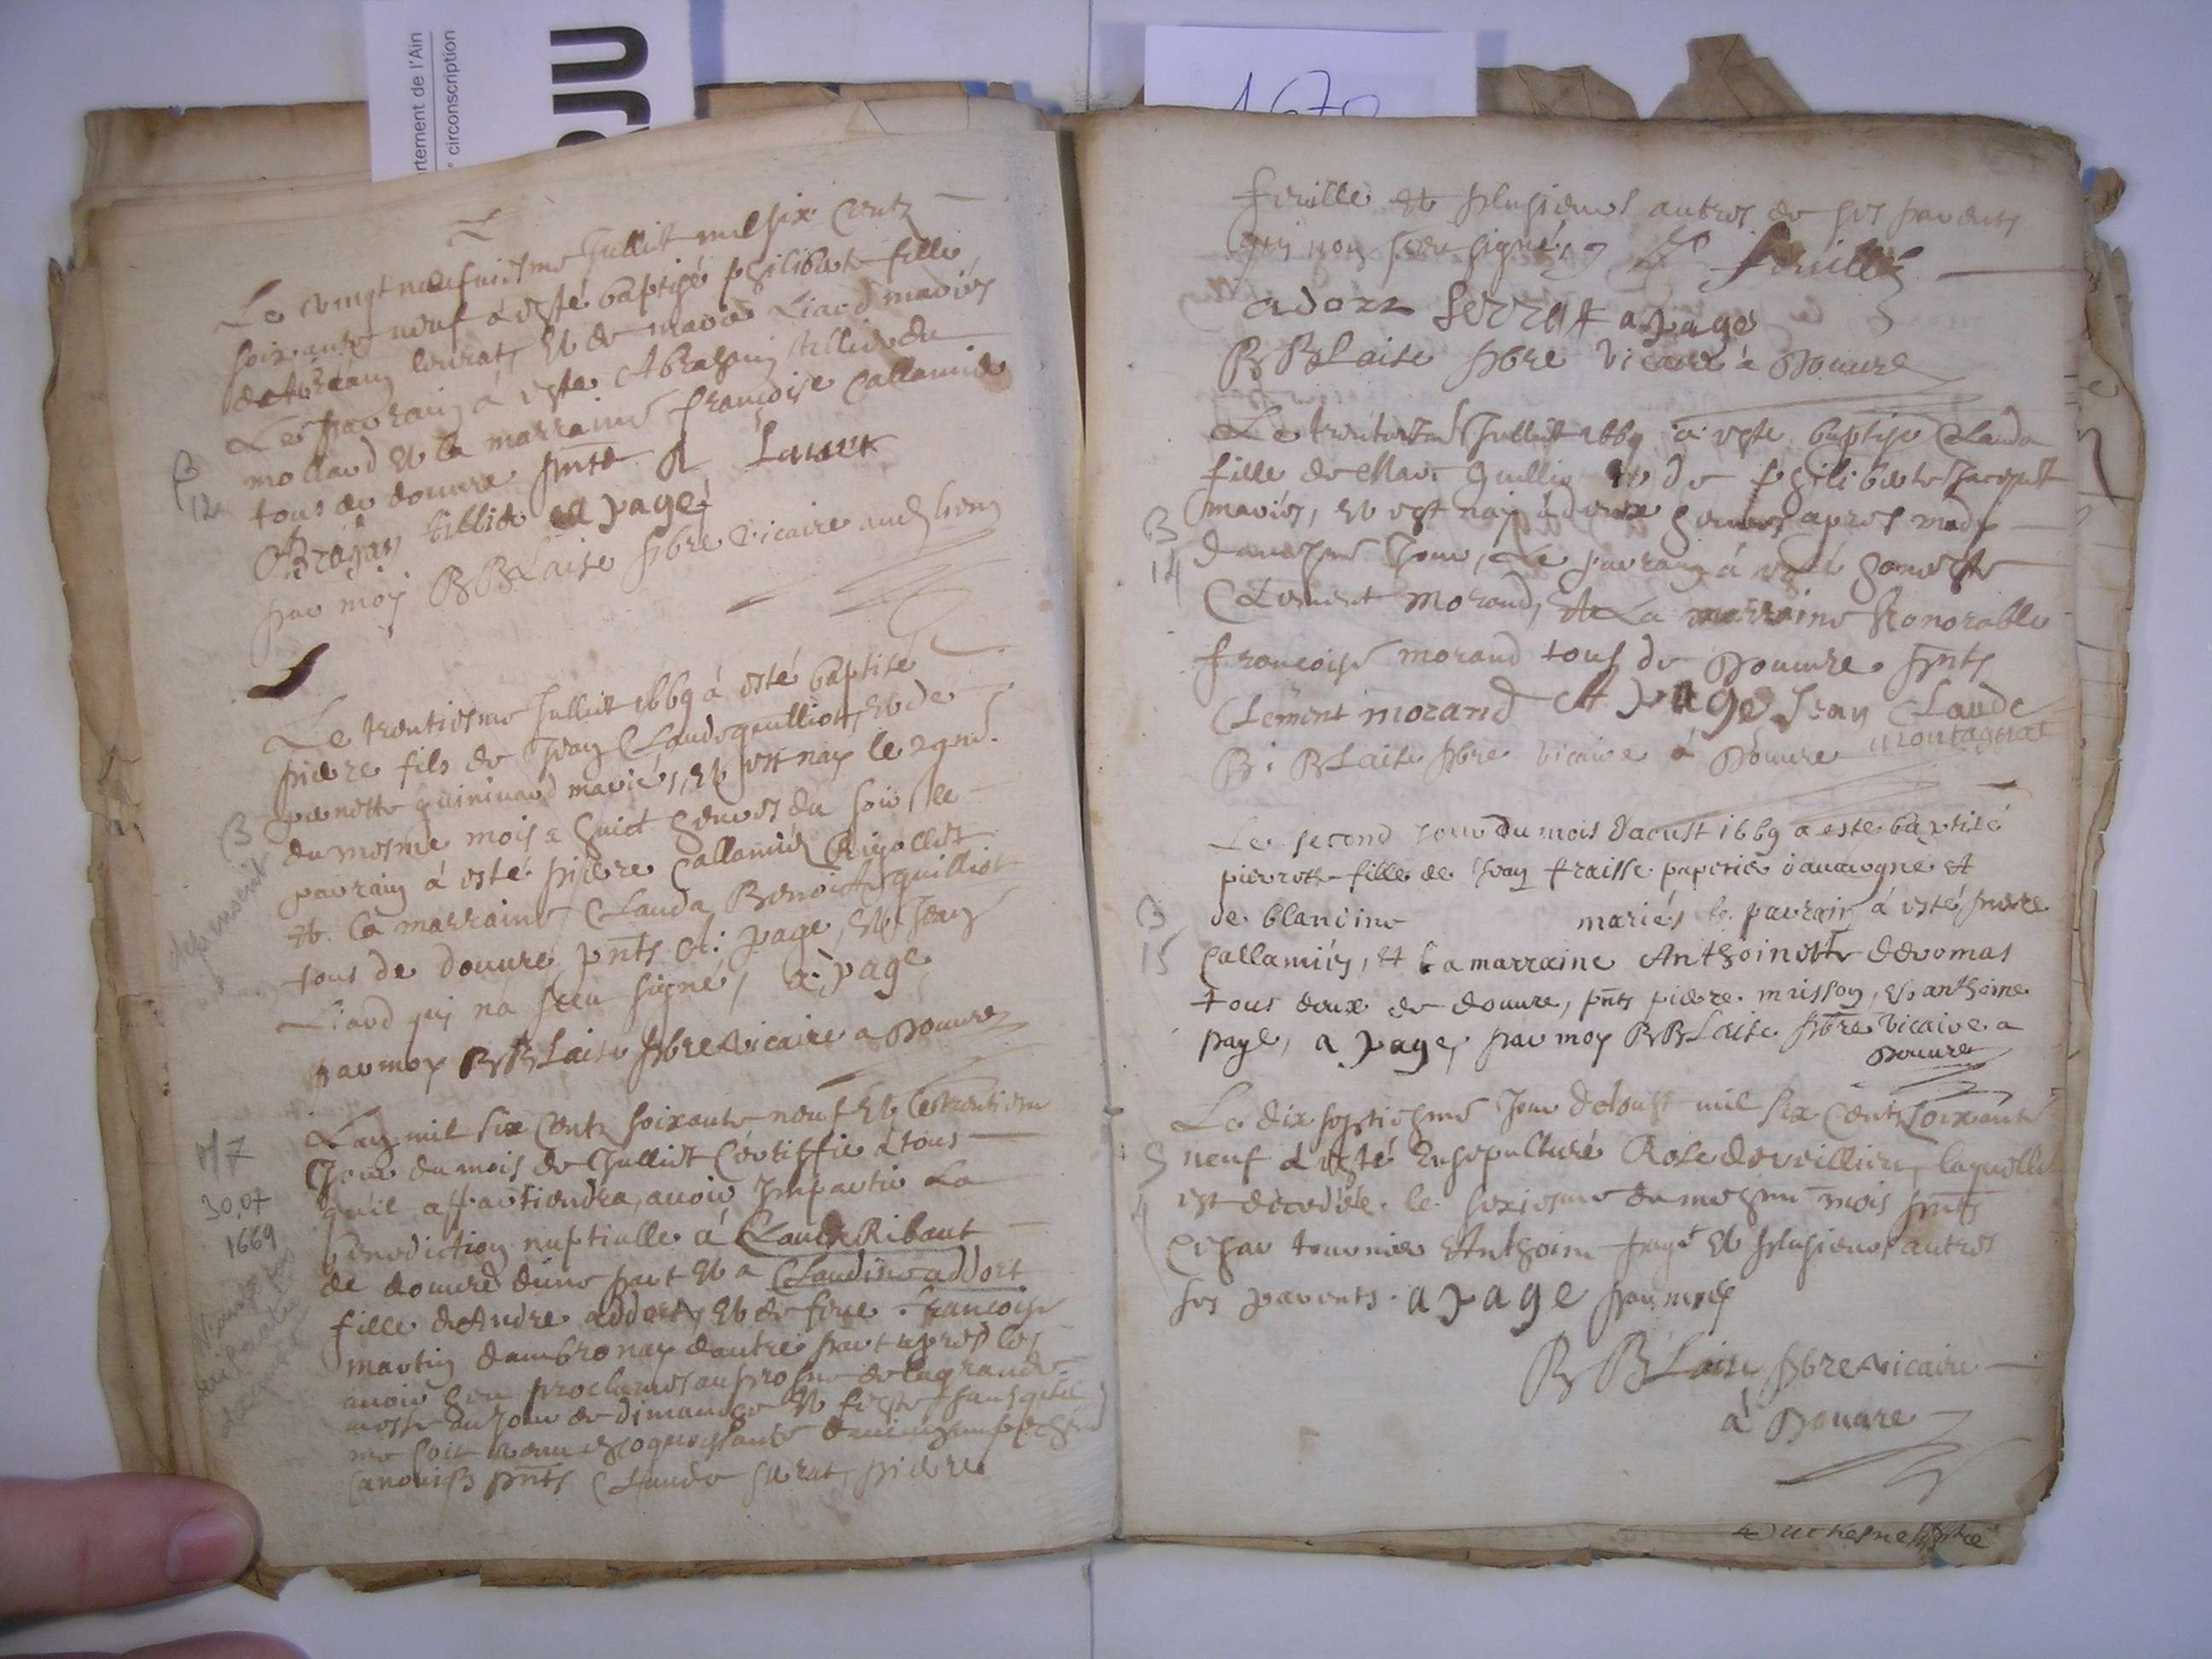 rtement de l'Ain
circonscription
1670
Le vingt neufuiesme Juillet mil six Centz
soixante neuf à esté baptisé philiberte fille
de Lourat, et de marie Liard mariés
Le parrain à esté Abraham tillier du
mollard et la marraine françoise Callamier
tous de douure pnts
tillier a page
par moy B BLaise pbre vicaire aud lieu
B
12
Le trentiesme Juillet 1669 à esté baptisé
pierre fils de Jean Claude guilliot, et de
pernette guininard mariés, et est nay le 29me
du mesme mois a huict heures du soir le
parrain à esté pierre Callamier Rigollet
et la marraine Clauda Benoict guilliot
tous de douure pnts A: page, et Jean
Liard qui na sceu signé, a: page
par moy B BLaise pbre vicaire a Douure
B
M 7
30.07
1669
Lan mil six Centz soixante neuf et le trentiem
Jour du mois de Juillet Certiffie à tous
qu'il appartiendra, auoir Impartir La
benediction nuptialle à Claude Ribaut
de douure dune part et a Claudine addort
fille de Andre addort, et de feue francoise
martin dambronay dautre part apres les
auoir heu proclamés au prosne de la grande
messe au Jour de dimanche et feste, sans qu'il
me soit venu
canonicq pnts Claude serat, pierre
feuille et plusieurs autres de ses parents
qui non sceu signé, feuillé
adorz serrat a page
B BLaise pbre vicaire à Douure
Le trentiesme Juillet 1669 à esté baptisé Clauda
fille de Marc guillio et de philiberte Jacquet
mariés, et est nay à deux heures apres midy
dumesme Jour, Le parrain à esté honeste
Clement Morand, et La marraine honorable
françoise morand tous de Douure pnts
Clement morand A page Jean Claude
montagnat
B: BLaise pbre vicaire à Douure
B
14
Le second Jour du mois daoust 1669 a este baptisé
pierrette fille de Jean fraisse papetier dauuergne et
de blandine mariés le parrain à esté pierre
Callamier, et La marraine Anthoinette deromas
tous deux de douure, pnts pierre musson, et anthoine
page, a page, par moy B BLaise pbre vicaire a
Douure
B
15
Le dix septiesme Jour daoust mil six Centz soixante
neuf à esté Ensepulturé Rose deveillieu, laquelle
est décedée le seziesme du mesme mois pnts
Cesar tournier Anthoine page et plusieurs autres
ses parents. a page par moy
B BLaise pbre vicaire
à Douure
S
4